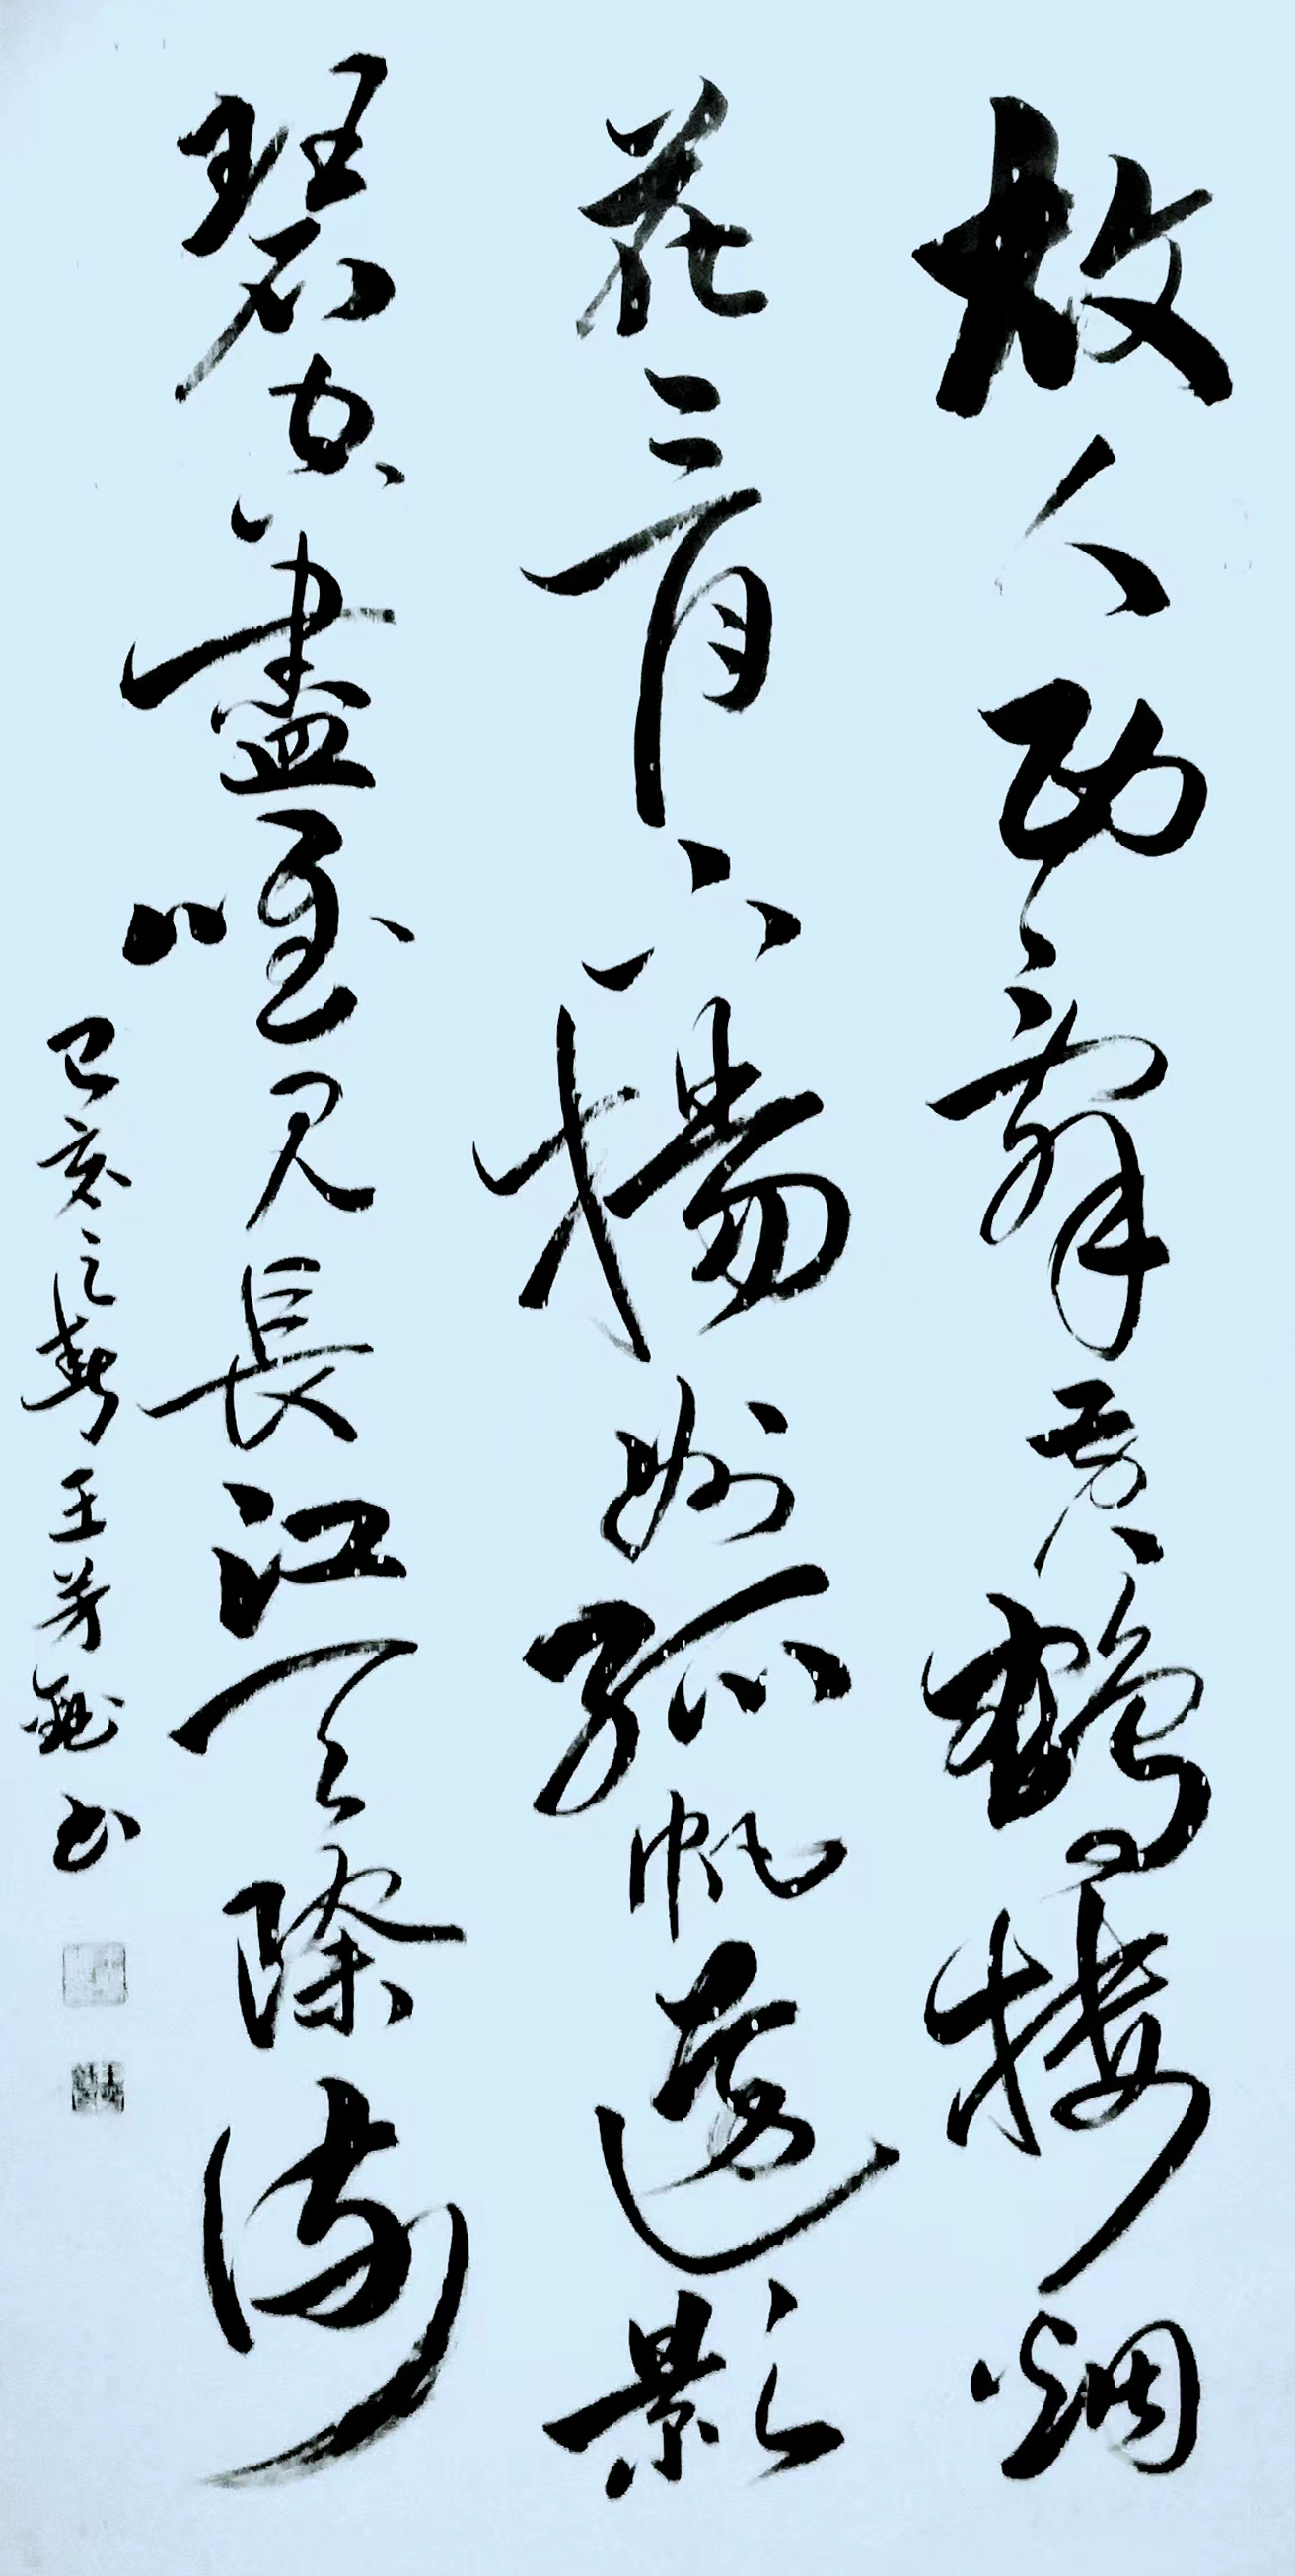 故人西辭黄鶴樓烟
花三月下揚州孤帆遠影
碧空盡唯見長江天際流
己亥之春王芳书